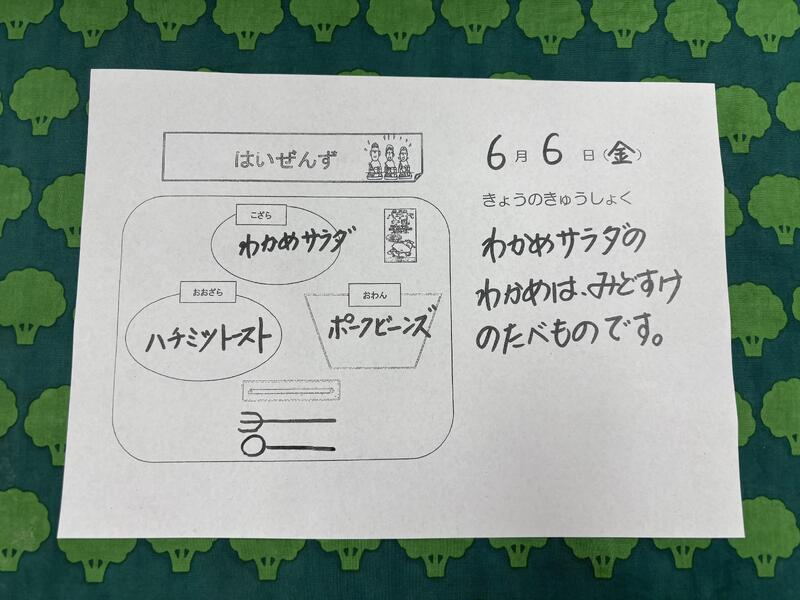 はいぜんず
こざら
わかめサラダ
おおざら
ハチミツトースト
おわん
ポークビーンズ
6月6日(金)
きょうのきゅうしょく
わかめサラダの
わかめは、みどすけ
のたべものです。